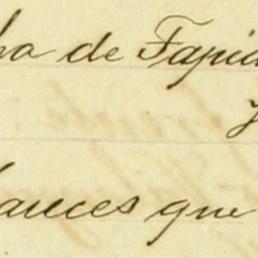 ha de Tapia
y
lances que